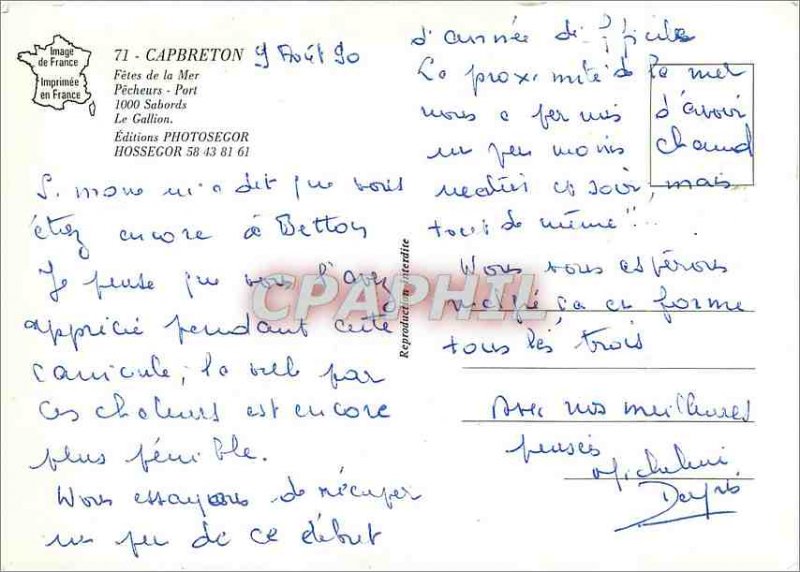 Image
de France
Imprimée
en France
71 - CAPBRETON
Fêtes de la Mer
Pêcheurs - Port
1000 Sabords
Le Gallion.
Éditions PHOTOSEGOR
HOSSEGOR 58 43 81 61
9 Août 90
Simone m'a dit que vous
étiez encore à Betton
Je pense que vous l'avez
apprécié pendant cette
canicule; la ville par
ces chaleurs est encore
plus pénible.
Nous essayons de récupérer
un peu de ce début
d'année difficile
La proximité de la mer
nous a permis d'avoir
un peu moins chaud
matin et soir, mais
tout de même"...
Nous vous espérons
malgré ça en forme
tous les trois
Avec nos meilleures
pensées
Reproduction interdite
CPAPHIL